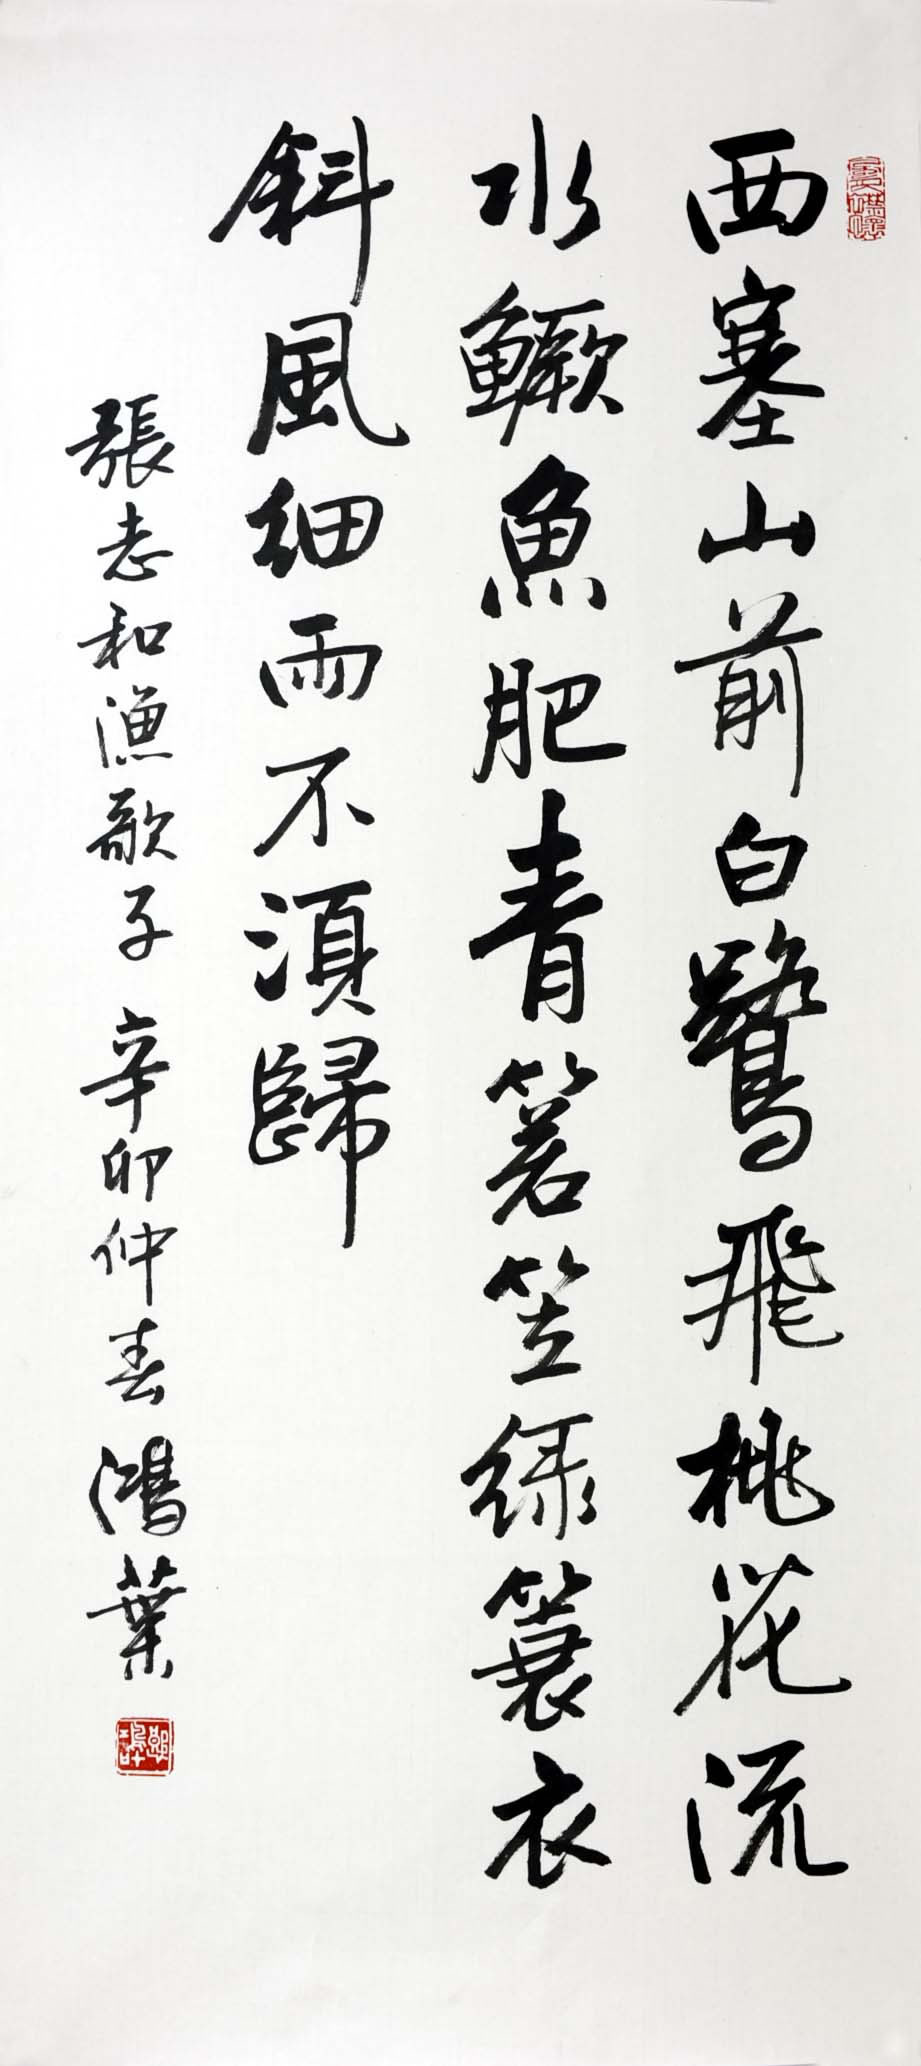 西塞山前白鷺飛桃花流
水鱖魚肥青箬笠綠簑衣
斜風細雨不須歸
張志和漁歌子 辛卯仲春 鴻葉